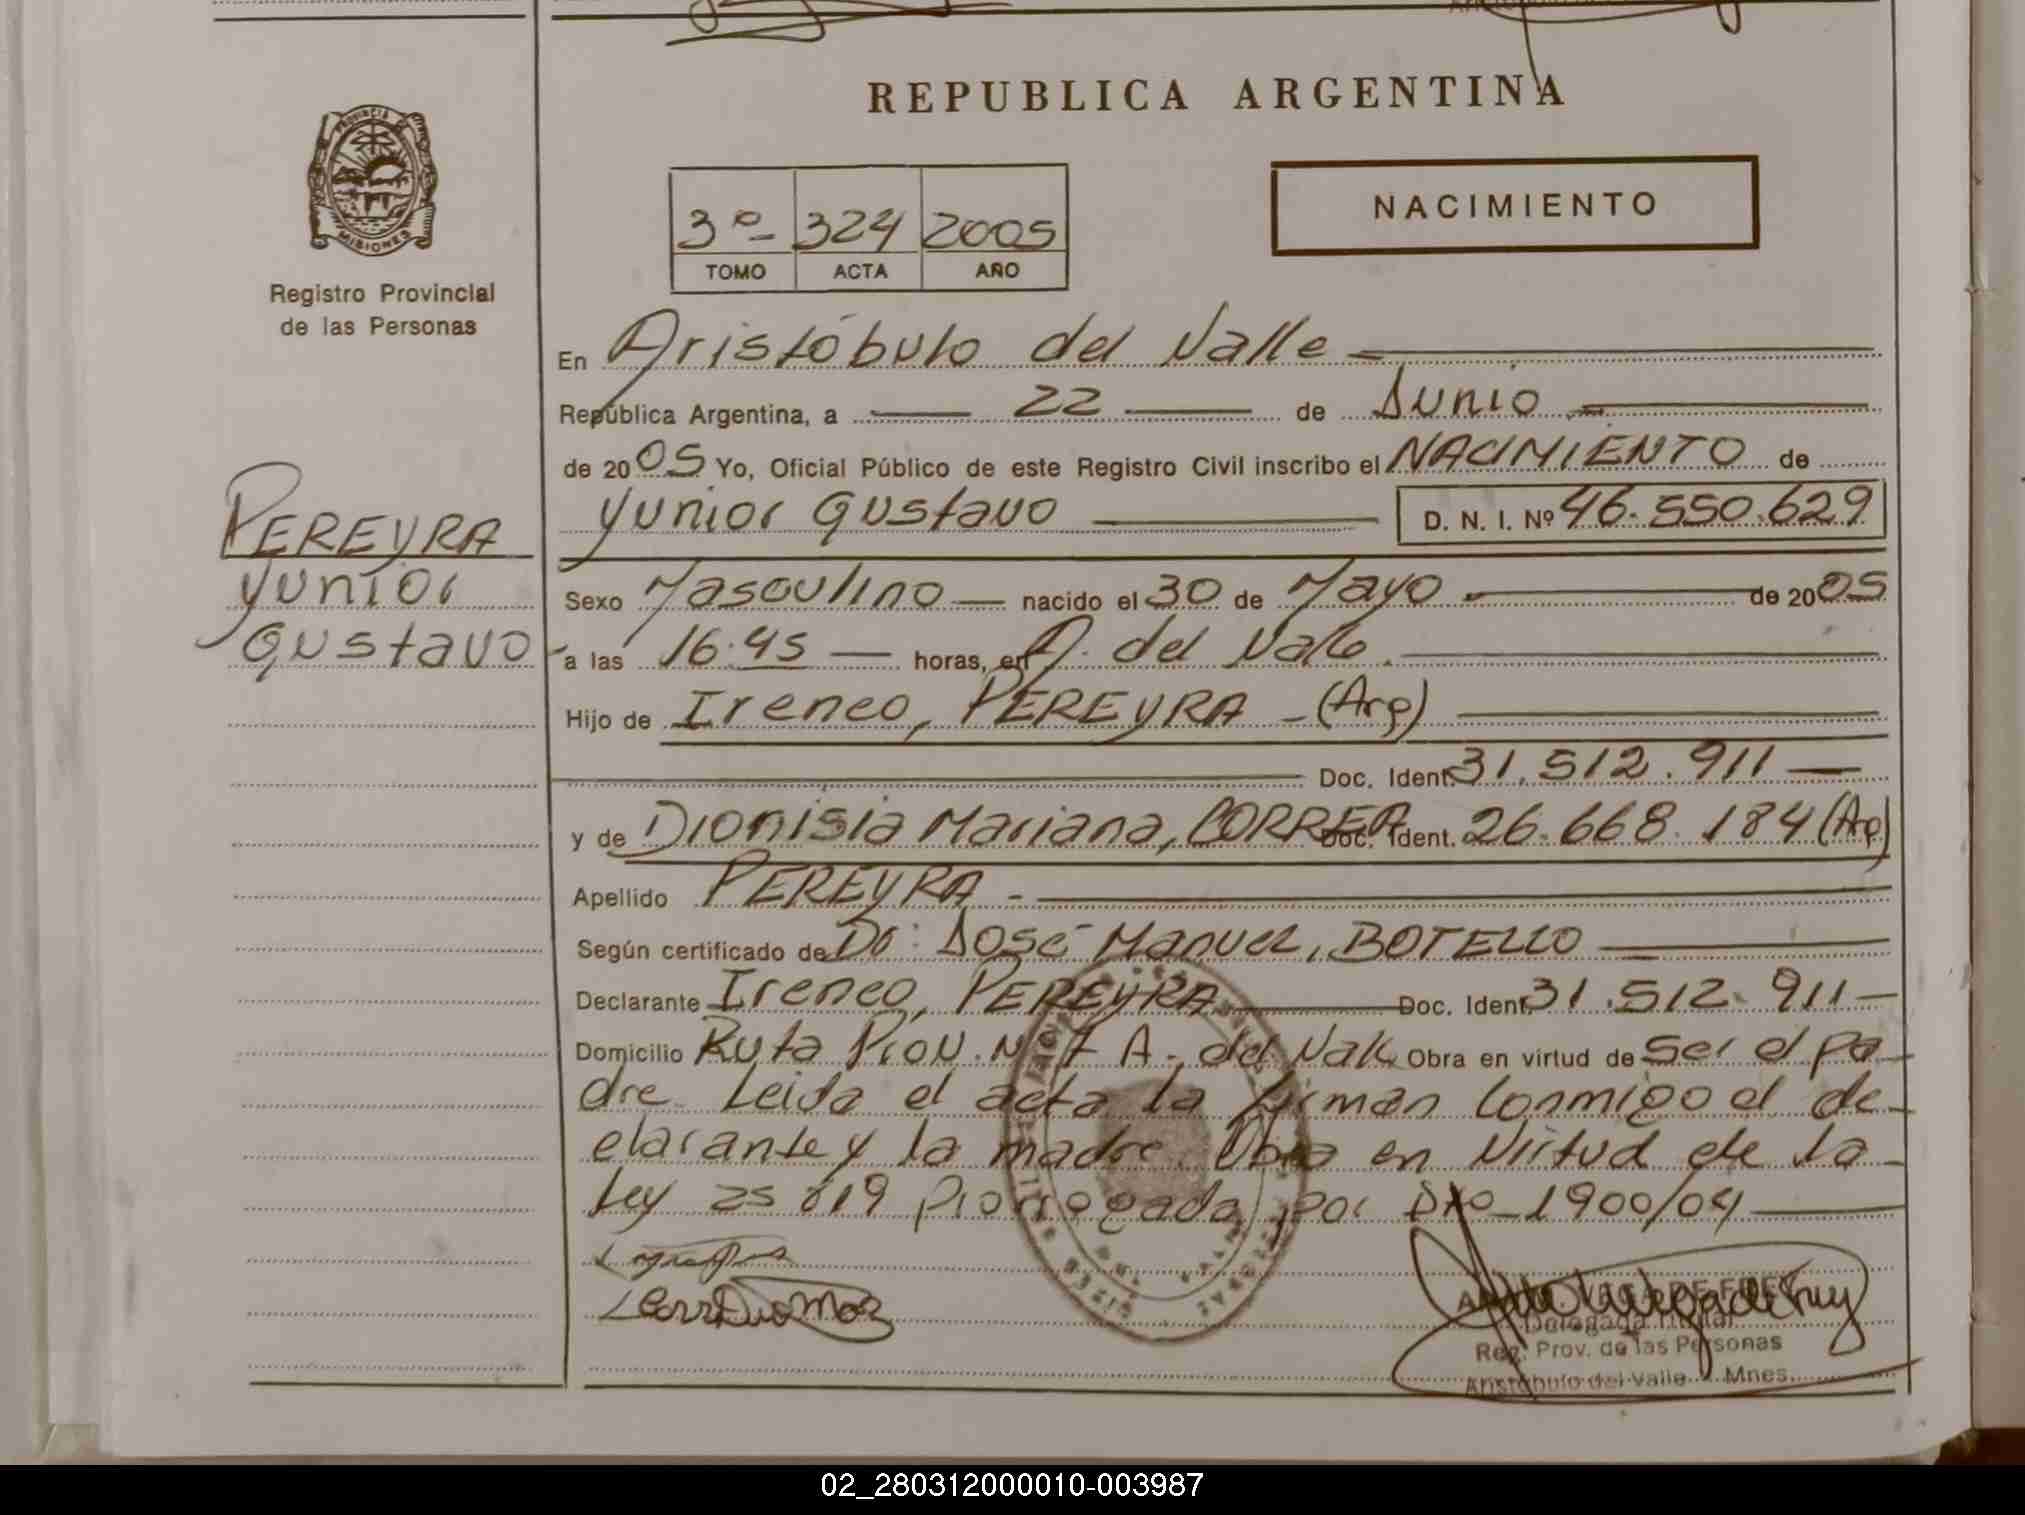 REPUBLICA ARGENTINA
PROVINCIA DE
MISIONES
Registro Provincial
de las Personas
NACIMIENTO
3º 324 2005
TOMO ACTA AÑO
En Aristóbulo del Valle
República Argentina, a 22 de Junio
de 2005 Yo, Oficial Público de este Registro Civil inscribo el NACIMIENTO de
Yunior Gustavo D. N. I. Nº 46.550.629
PEREYRA
Yunior
Gustavo
Sexo Masculino nacido el 30 de Mayo de 2005
a las 16.45 horas, en A. del Valle.
Hijo de Ireneo, PEREYRA - (Arg)
Doc. Ident. 31.512.911
y de Dionisia Mariana, CORREA Doc. Ident. 26.668.184 (Arg)
Apellido PEREYRA -
Según certificado de Dr: José Manuel, BOTELLO
Declarante Ireneo, PEREYRA Doc. Ident. 31.512.911
Domicilio Ruta Prov. Nº 7 A. del Valle Obra en virtud de ser el pa-
dre. Leida el acta la firman conmigo el de-
clarante y la madre. Obra en virtud de la
Ley 25 819 prorrogada por Dto 1900/04
VEGA DE FREY
Delegada Titular
Reg. Prov. de las Personas
Aristóbulo del Valle - Mnes.
02_280312000010-003987